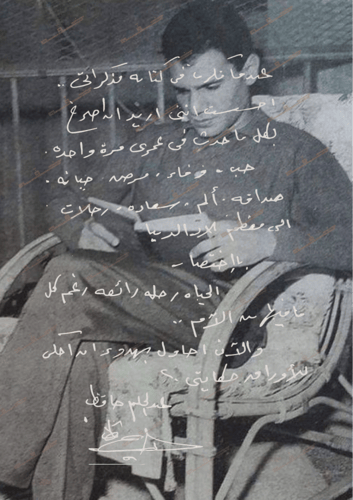 عندما فكرت فى كتابة مذكراتى ..
احسست اننى اريد ان اصرخ
بكل ما حدث فى عمرى مرة واحده .
حب . وفاء . مرض . خيانه .
صداقه . ألم . سعاده . رحلات
الى معظم الدنيا
بالإختصار –
الحياه رحله رائعه رغم كل
ما فيها من آلام ..
والآن احاول بهدوء ان احكى
للأوراق حكايتى ..
عبدالحليم حافظ